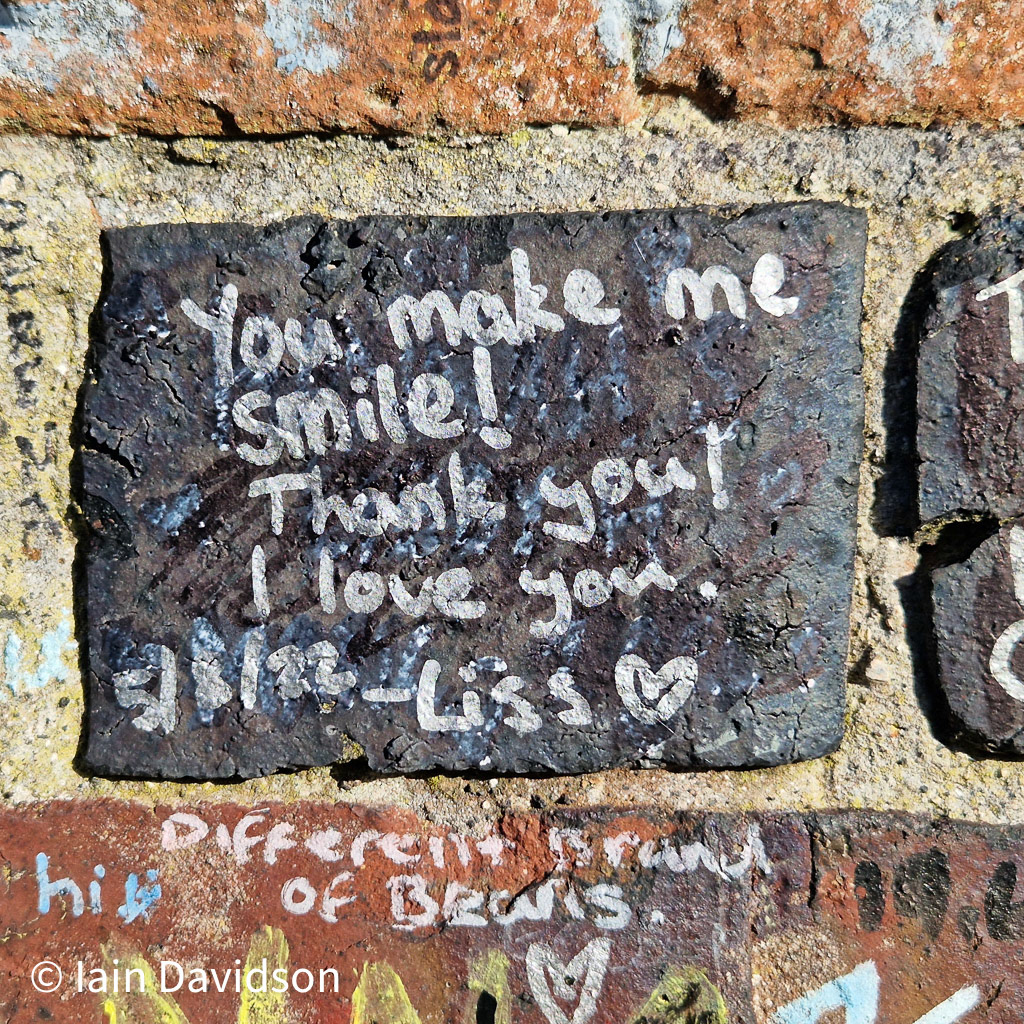 You make me
smile!
Thank you!
I love you.
5/8/22 -Liss
Different Brand
of Beans.
hi
© Iain Davidson